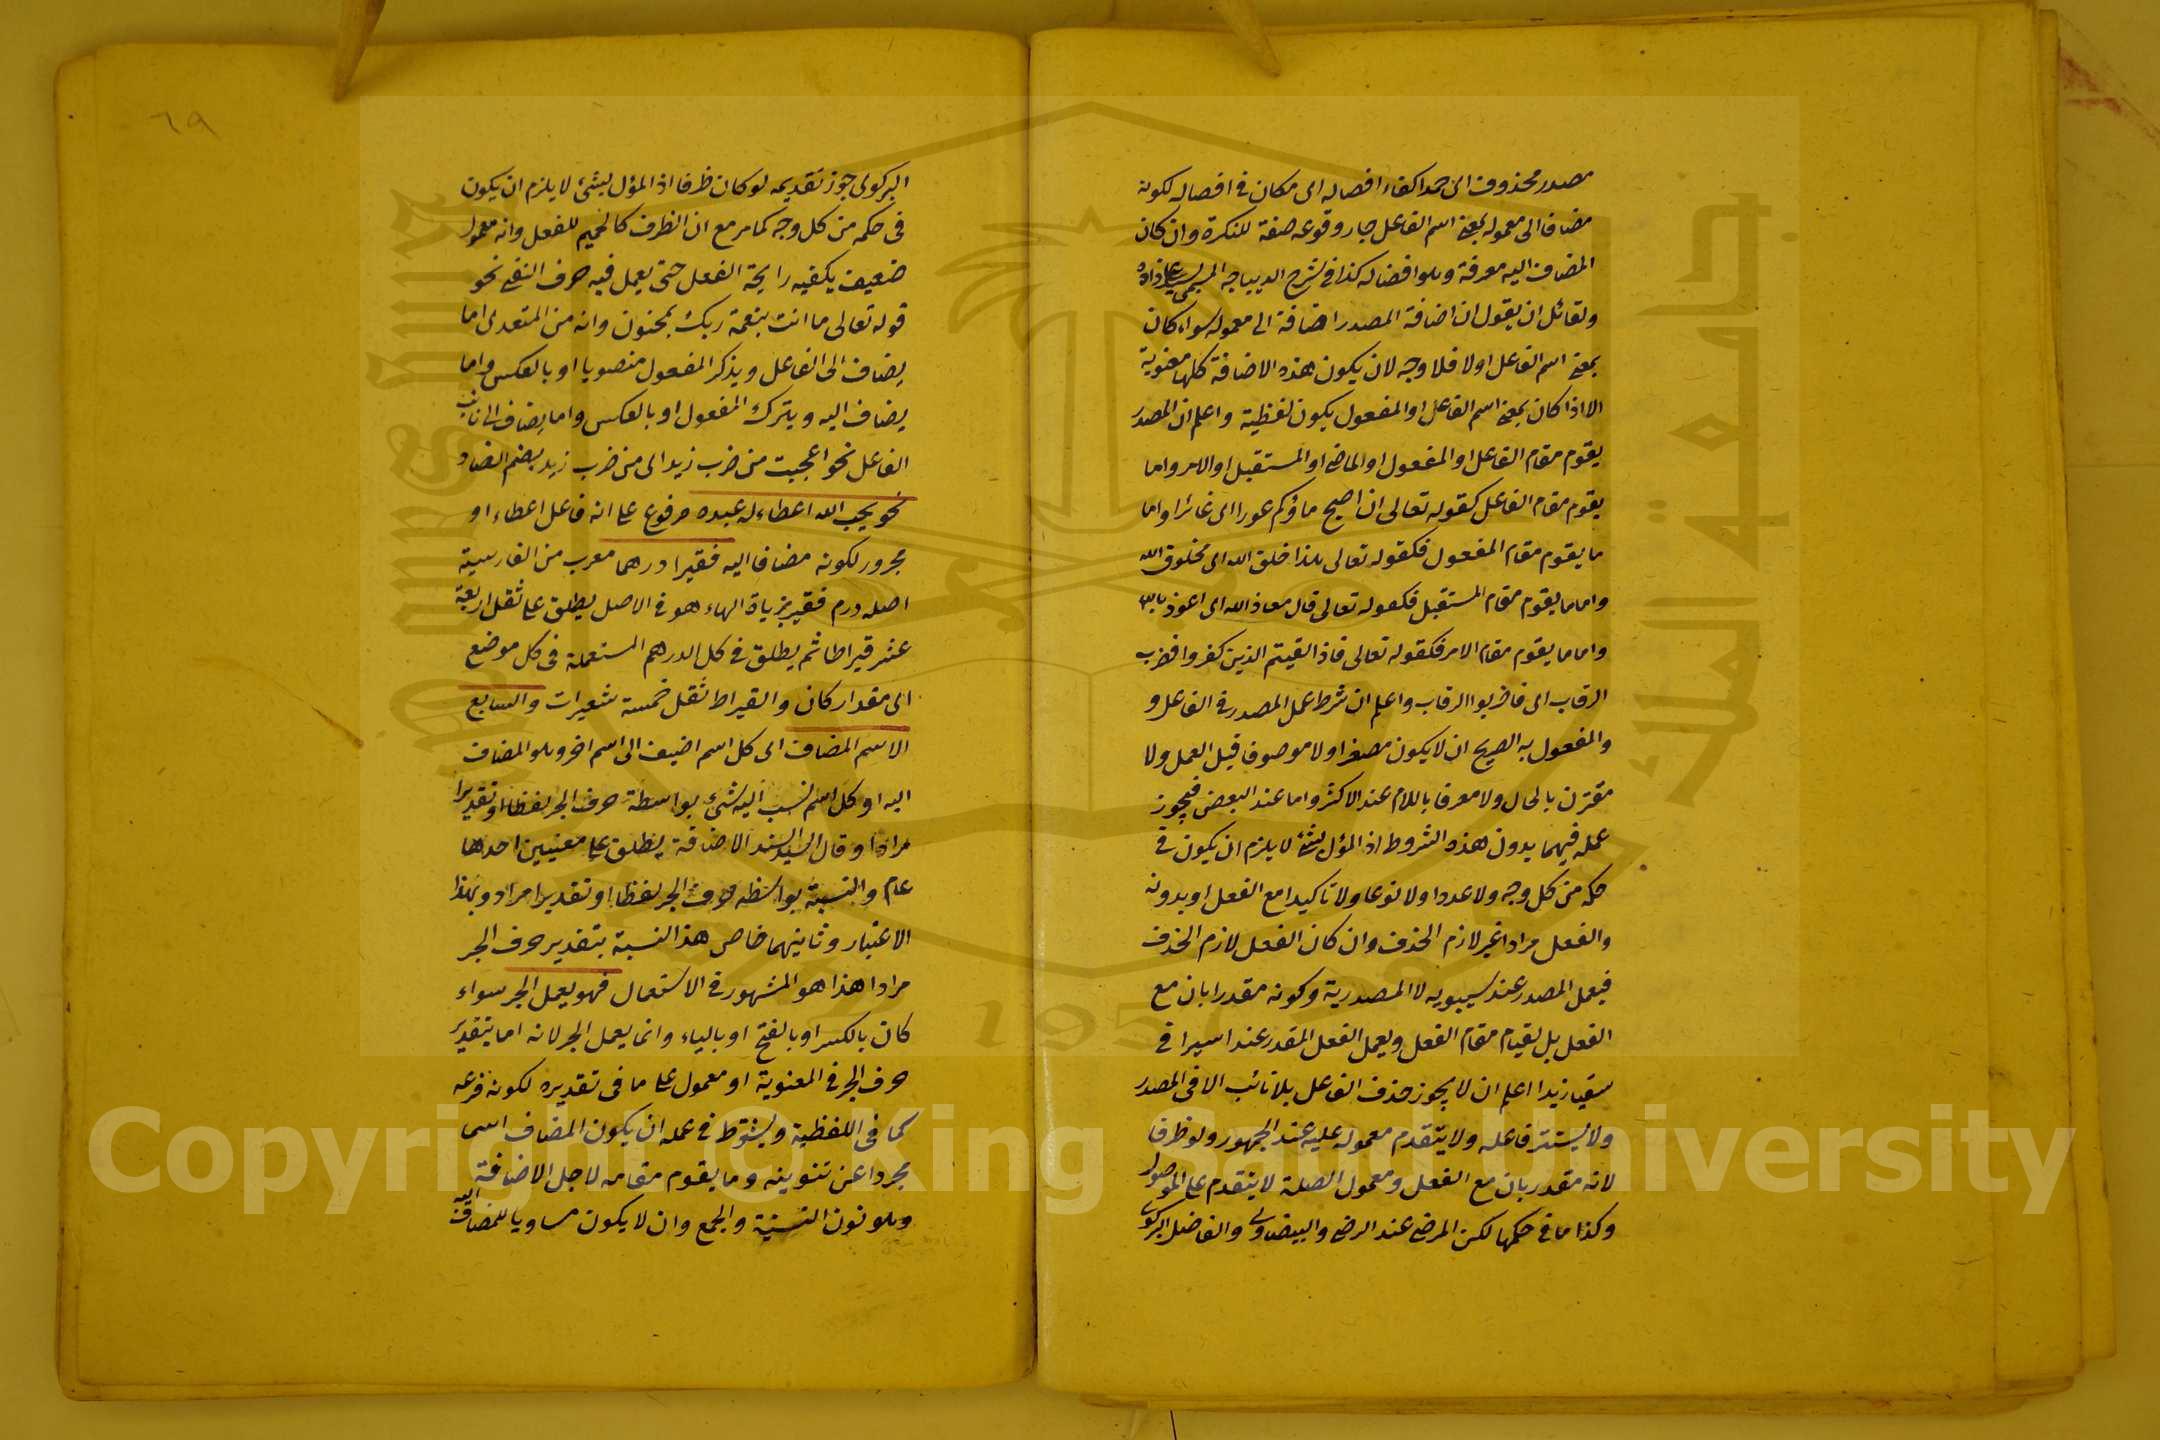 مصدر محذوف اى حمدا كفاء افضاله اى مكان فى افضاله لكونه
مضافا الى معموله بمعنى اسم الفاعل جاز وقوعه صفة للنكرة وان كان
المضاف اليه معرفة وهو افضاله كذا فى شرح الديباجه المسمى
ولقائل ان يقول ان اضافة المصدر اضافة الى معموله سواء كان
بمعنى اسم الفاعل اولا فلا وجه لان يكون هذه الاضافة كلها معنوية
الا اذا كان بمعنى اسم الفاعل او المفعول يكون لفظية واعلم ان المصدر
يقوم مقام الفاعل او المفعول او الماضى او المستقبل او الامر واما
يقوم مقام الفاعل كقوله تعالى ان اصبح ماؤكم غورا اى غائرا واما
ما يقوم مقام المفعول فكقوله تعالى هذا خلق الله اى مخلوق الله
واما ما يقوم مقام المستقبل فكقوله تعالى قال معاذ الله اى اعوذ بالله
واما ما يقوم مقام الامر فكقوله تعالى فاذا لقيتم الذين كفروا فضرب
الرقاب اى فاضربوا الرقاب واعلم ان شرط عمل المصدر فى الفاعل و
والمفعول به الصريح ان لا يكون مصغرا ولا موصوفا قبل العمل ولا
مقترن بالحال ولا معرفا باللام عند الاكثر واما عند البعض فيجوز
عمله فيهما بدون هذه الشروط اذ المؤل بشئ لا يلزم ان يكون فى
حكمه من كل وجه ولا عددا ولا نوعا ولا تاكيدا مع الفعل او بدونه
والفعل مرادا غير لازم الحذف وان كان الفعل لازم الحذف
فيعمل المصدر عند سيبويه لا المصدرية وكونه مقدرا بان مع
الفعل بل لقيام مقام الفعل ويعمل الفعل المقدر عند السيرا فى
سقيا زيدا اعلم ان لا يجوز حذف الفاعل بلا نائب الا فى المصدر
ولا يستتر فاعله ولا يتقدم معموله عليه عند الجمهور ولو ظرفا
لانه مقدر بان مع الفعل ومعمول الصلة لا يتقدم على الموصول
وكذا ما فى حكمها لكن المرضى عند الرضى والبيضاوى والفاضل البركوى
٦٩
البركوى جوز تقديمه لو كان ظرفا اذ المؤل بشئ لا يلزم ان يكون
فى حكمه من كل وجه كما مر مع ان الظرف كالمحيم للفعل وانه معمول
ضعيف يكفيه رايحة الفعل حتى يعمل فيه حرف النفى نحو
قوله تعالى ما انت بنعمة ربك بمجنون وانه من المتعدى اما
يضاف الى الفاعل ويذكر المفعول منصوبا او بالعكس واما
يضاف اليه ويترك المفعول او بالعكس واما يضاف الى نائب
الفاعل نحو اعجبت من ضرب زيد اى من ضرب زيد بضم الضاد
نحو يحب الله اعطاء له عبده مرفوع على انه فاعل اعطاء او
مجرور لكونه مضافا اليه فقيرا درهما معرب من الفارسية
اصله درم فقير بزيادة الهاء هو فى الاصل يطلق على ثقل اربعة
عشر قيراطا ثم يطلق فى كل الدرهم المستعملة فى كل موضع
اى مقدار كان والقيراط ثقل خمسة شعيرات والسابع
الاسم المضاف اى كل اسم اضيف الى اسم اخر وهو المضاف
اليه او كل اسم نسب اليه شئ بواسطة حرف الجر لفظا او تقديرا
مرادا وقال السيد السند الاضافة يطلق على معنيين احدهما
عام والنسبة بواسطه حرف الجر لفظا او تقديرا مراد وبهذا
الاعتبار وثانيهما خاص هذا النسبة بتقدير حرف الجر
مرادا هذا هو المشهور فى الاستعمال فهو يعمل الجر سواء
كان بالكسر او بالفتح او بالياء وانما يعمل الجر لانه اما بتقدير
حرف الجر فى المعنوية او معمول على ما فى تقديره لكونه فرعه
كما فى اللفظية ويشترط فى عمله ان يكون المضاف اسما
مجردا عن تنوينه وما يقوم مقامه لاجل الاضافة
وهو نون التثنية والجمع وان لا يكون مساويا للمضاف اليه
Copyright © King Saud University
جامعة الملك سعود
King Saud University
1957